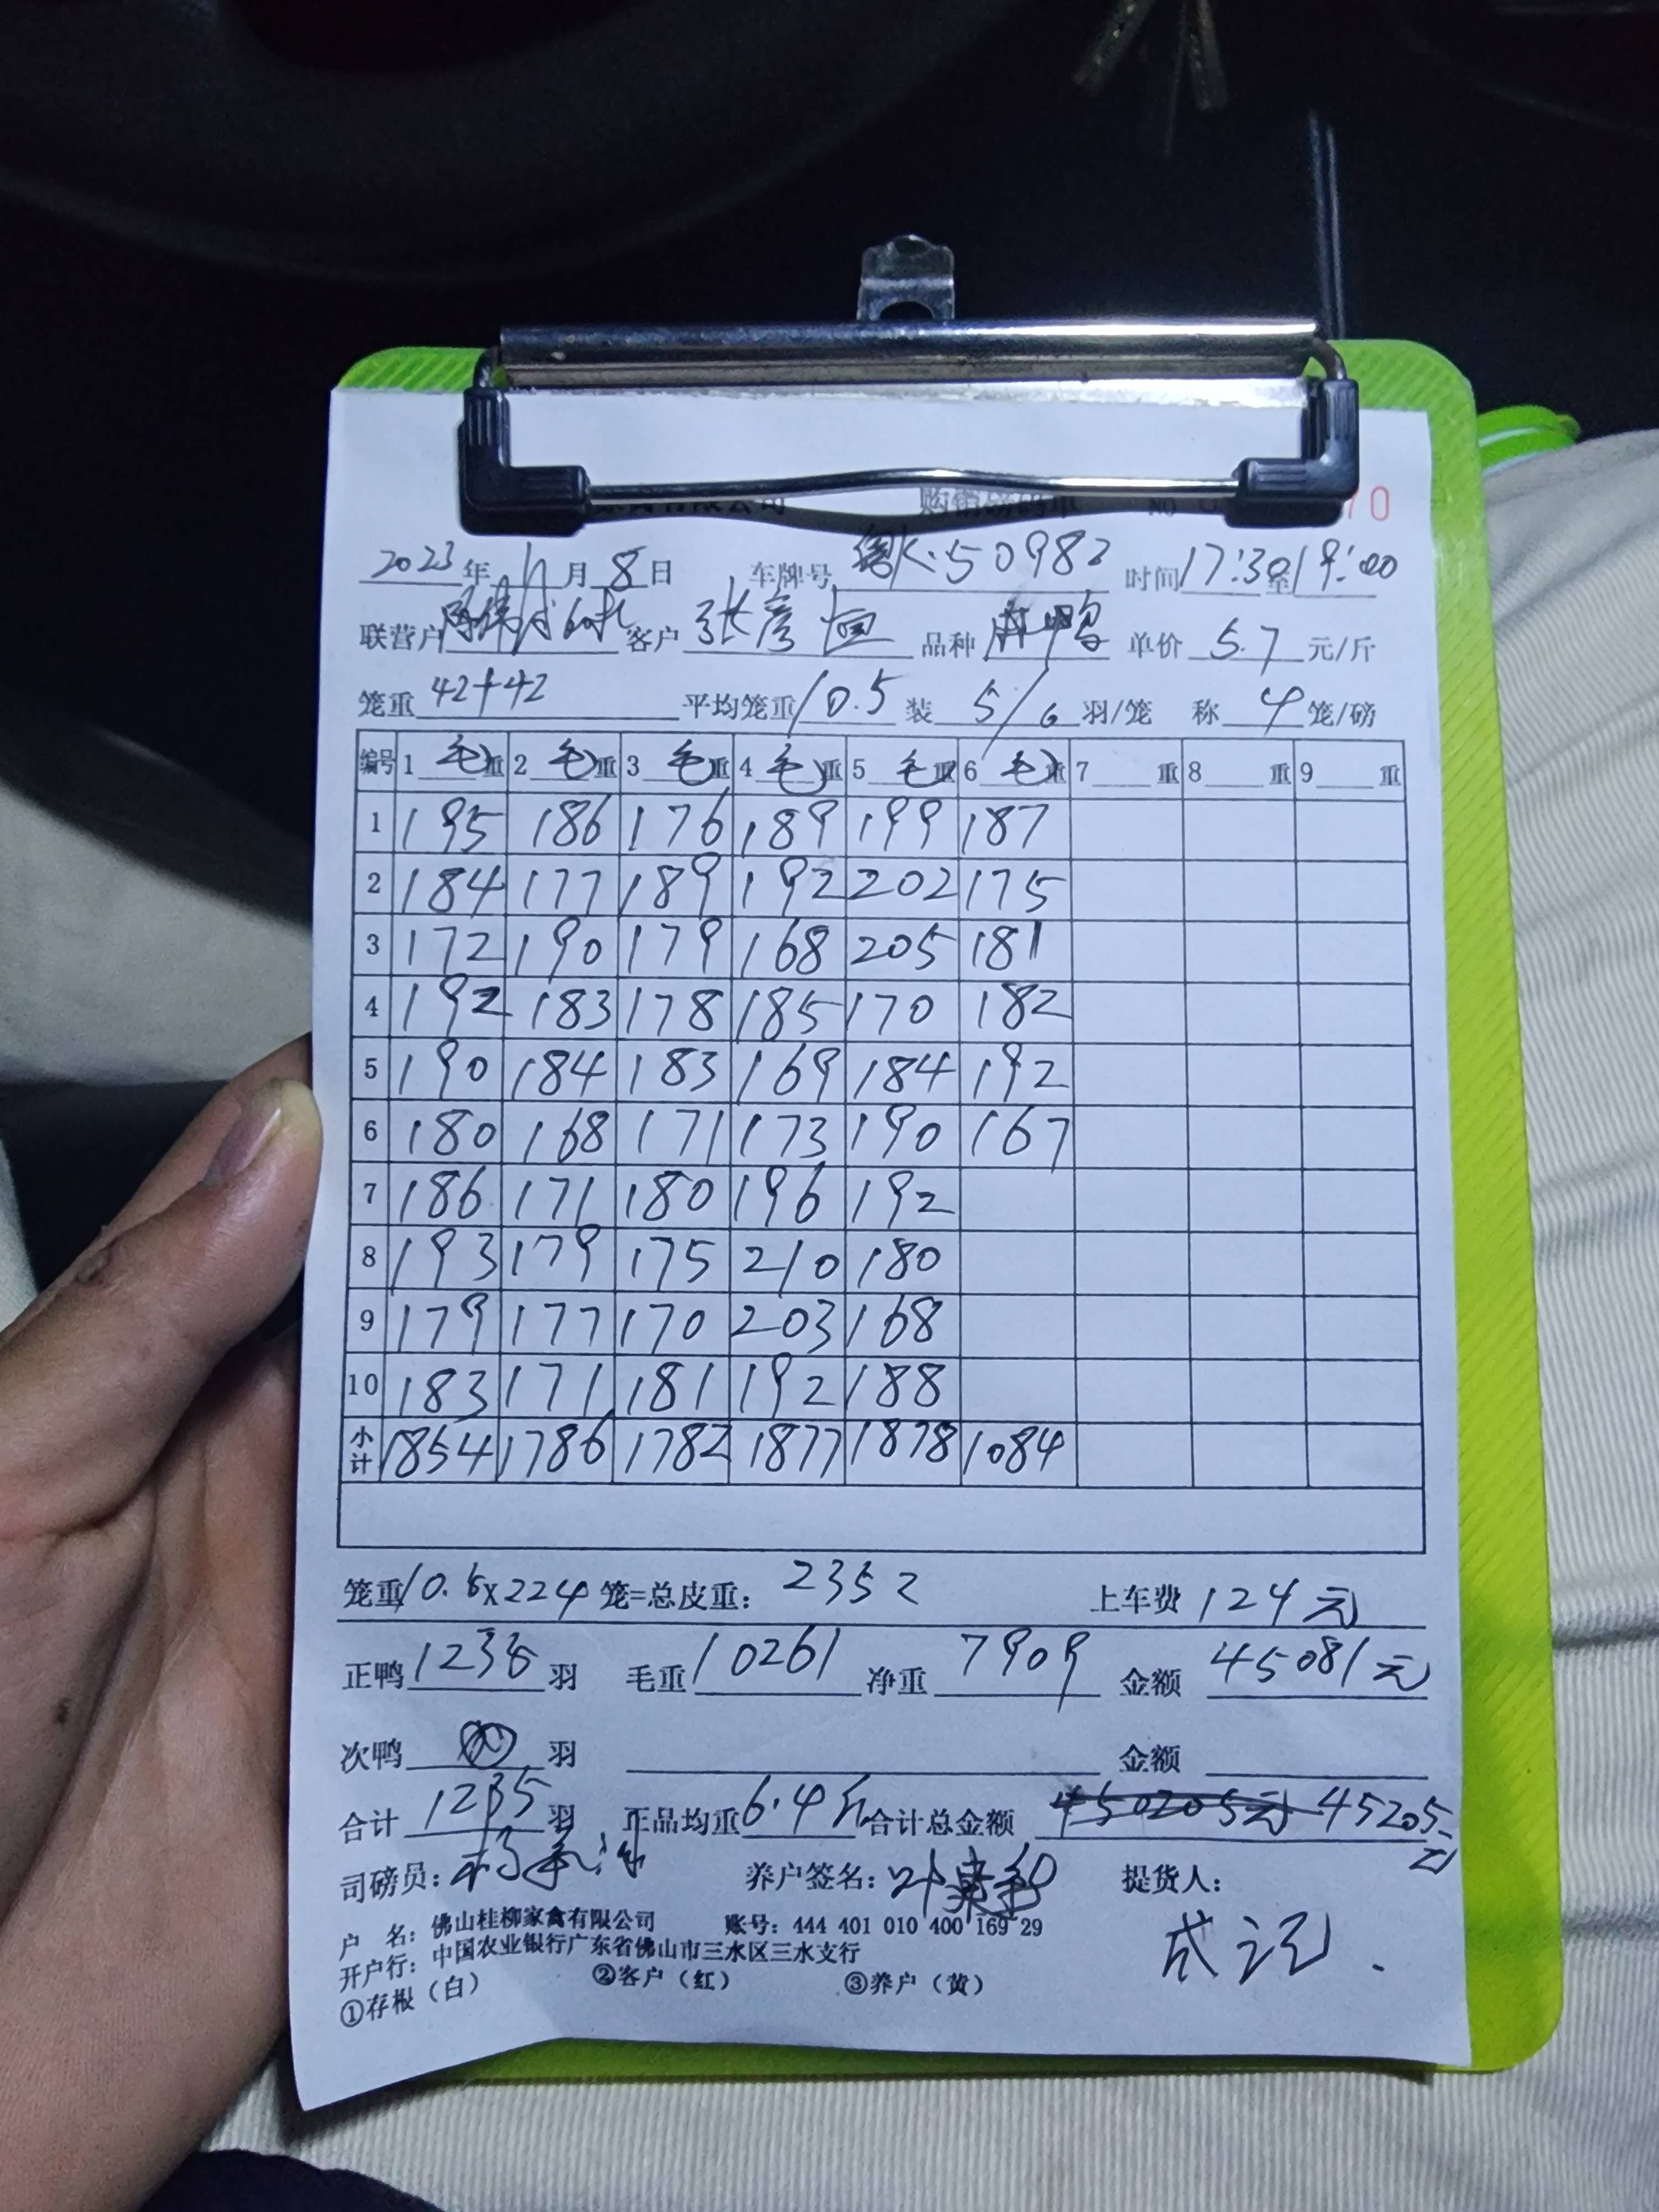 购销磅码单 NO 70
2023年11月8日 车牌号 粤K:50982 时间17:30至19:00
联营户 客户 张彦恒 品种 麻鸭 单价 5.7 元/斤
笼重 42+42 平均笼重 10.5 装 5/6 羽/笼 称 4 笼/磅
编号 1 毛重 2 毛重 3 毛重 4 毛重 5 毛重 6 毛重 7 重 8 重 9 重
1 195 186 176 189 199 187
2 184 177 189 192 202 175
3 172 190 179 168 205 181
4 192 183 178 185 170 182
5 190 184 183 169 184 192
6 180 168 171 173 190 167
7 186 171 180 196 192
8 193 179 175 210 180
9 179 177 170 203 168
10 183 171 181 192 188
小计 1854 1786 1782 1877 1878 1084
笼重 10.5x224 笼=总皮重: 2352 上车费 124元
正鸭 1235 羽 毛重 10261 净重 7909 金额 45081元
次鸭 羽 金额
合计 1235 羽 正品均重 6.4斤 合计总金额 450205元 45205元
司磅员: 养户签名: 提货人:
成记.
户 名: 佛山桂柳家禽有限公司 账号: 444 401 010 400 169 29
开户行: 中国农业银行广东省佛山市三水区三水支行
①存根(白) ②客户(红) ③养户(黄)